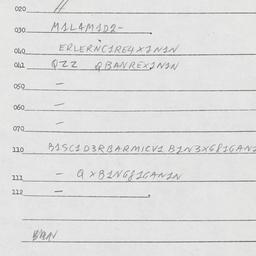 020
030 M1L4M1D2-
040 ERLERNC1RE4X1N1N
041 QZZ QBANREX1N1N
050 –
060 –
070 –
110 B1SC1D3RBARMICV1 B2N3XG81GAN2
111 – QXB1NG81GAN1N
112 –